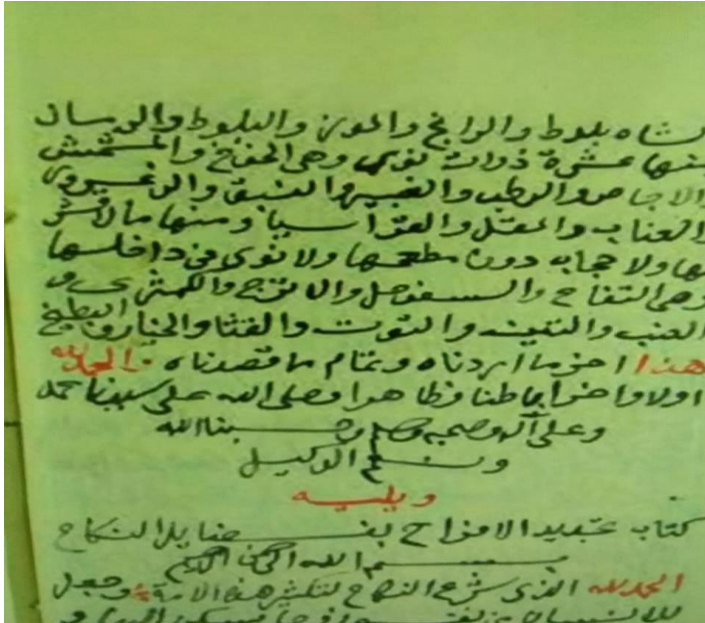 الشاه بلوط والرانج والموز والبلوط والر
ومنها عشرة ذوات نوى وهى الخوخ والمشمش
والاجاص والرطب والغبيرا والنبق والزعرور و
والعناب والمقل والقراسيا ومنها ما لا قشر
لها ولا حجاب دون مطعمها ولا نوى فى داخلها
وهى التفاح والسفرجل والاترج والكمثرى و
العنب والتين والتوت والقثا والخيار والبطيخ
هذا اخر ما اردناه وتمام ما قصدناه والحمد لله
اولا واخرا باطنا وظاهرا وصلى الله على سيدنا محمد
وعلى آله وصحبه وسلم وحسبنا الله
ونعم الوكيل
ويليه
كتاب الافراح بفضايل النكاح
بسم الله الرحمن الرحيم
الحمد لله الذى شرع النكاح لتكثير هذه الامة وجعل